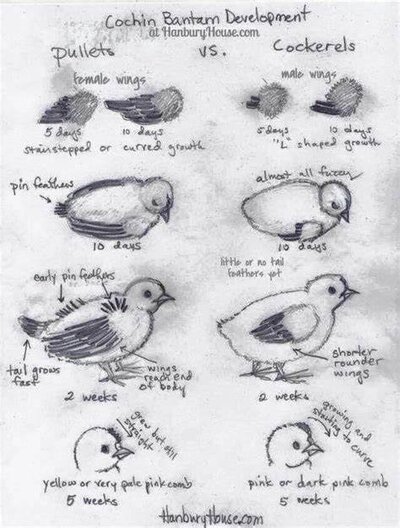 Cochin Bantam Development
at HanburyHouse.com
pullets vs. Cockerels
female wings
male wings
5 days 10 days
5 days 10 days
stairstepped or curved growth
"L" shaped growth
pin feathers
almost all fuzzy
10 days
10 days
little or no tail
feathers yet
early pin feathers
tail grows
fast
wings
reach end
of body
shorter
rounder
wings
2 weeks
2 weeks
grow but still
straight
growing and
starting to curve
yellow or very pale pink comb
5 weeks
pink or dark pink comb
5 weeks
HanburyHouse.com